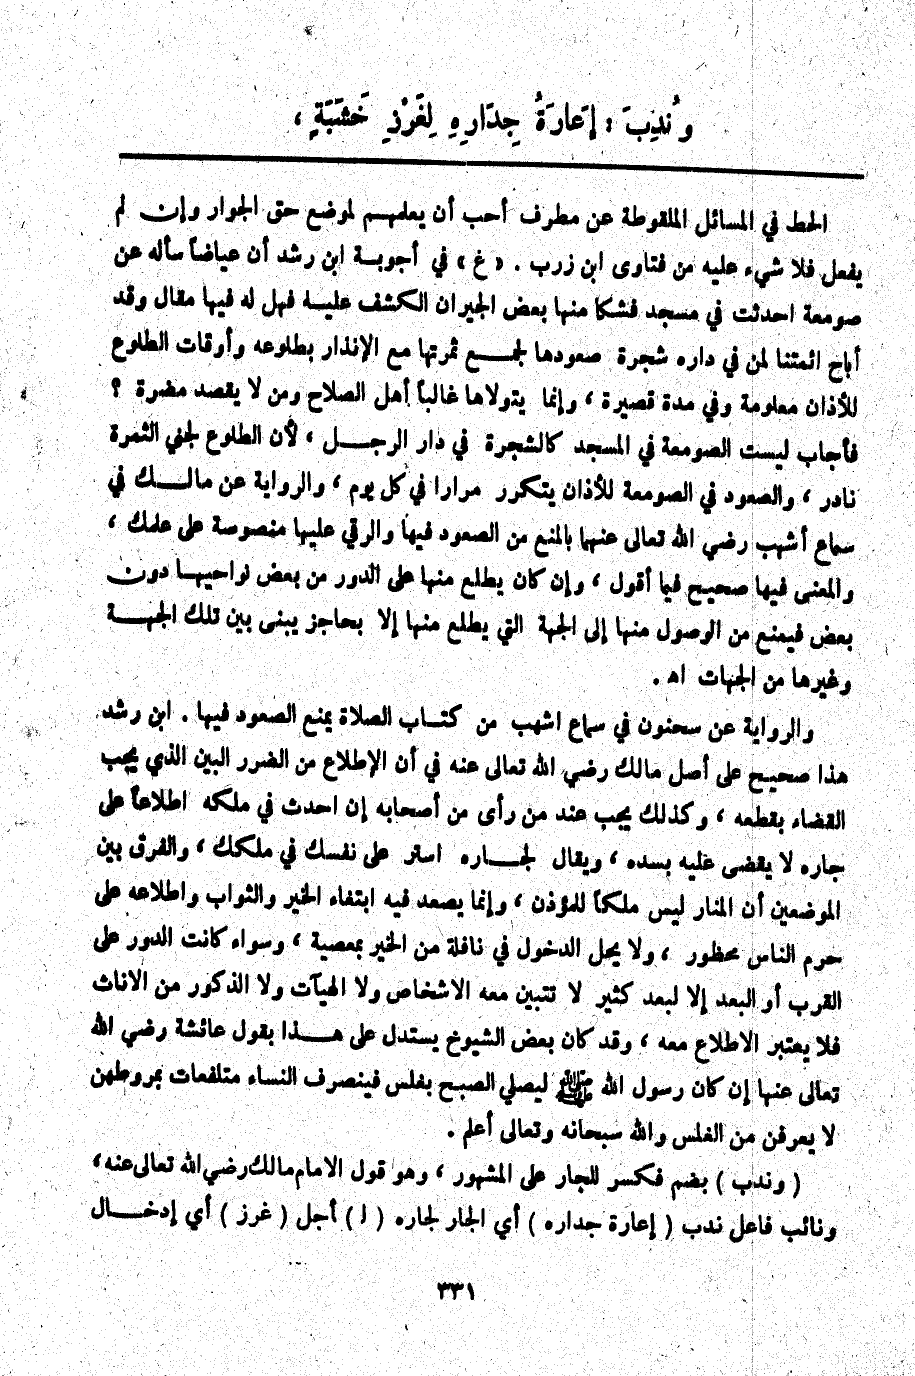 وَنُدِبَ : إِعَارَةُ جِدَارِهِ لِغَرْزِ خَشَبَةٍ ،
الحط في المسائل الملقوطة عن مطرف أحب أن يعلمهم لموضع حق الجوار وإن لم
يفعل فلا شيء عليه من فتاوى ابن زرب . « غ » في أجوبة ابن رشد أن عياضاً سأله عن
صومعة احدثت في مسجد فشكا منها بعض الجيران الكشف عليه فهل له فيها مقال وقد
أباح ائمتنا لمن في داره شجرة صعودها لجمع ثمرتها مع الإنذار بطلوعه وأوقات الطلوع
للأذان معلومة وفي مدة قصيرة ، وإنما يتولاها غالباً أهل الصلاح ومن لا يقصد مضرة ؟
فأجاب ليست الصومعة في المسجد كالشجرة في دار الرجل ، لأن الطلوع لجني الثمرة
نادر ، والصعود في الصومعة للأذان يتكرر مرارا في كل يوم ، والرواية عن مالك في
سماع أشهب رضي الله تعالى عنهما بالمنع من الصعود فيها والرقي عليها منصوصة على علمك ،
والمعنى فيها صحيح فيما أقول ، وإن كان يطلع منها على الدور من بعض نواحيها دون
بعض فيمنع من الوصول منها إلى الجهة التي يطلع منها إلا بحاجز يبنى بين تلك الجهة
وغيرها من الجهات اهـ .
والرواية عن سحنون في سماع اشهب من كتاب الصلاة يمنع الصعود فيها . ابن رشد
هذا صحيح على أصل مالك رضي الله تعالى عنه في أن الإطلاع من الضرر البين الذي يجب
القضاء بقطعه ، وكذلك يجب عند من رأى من أصحابه إن احدث في ملكه اطلاعاً على
جاره لا يقضى عليه بسده ، ويقال لجاره استر على نفسك في ملكك ، والفرق بين
الموضعين أن المنار ليس ملكاً للمؤذن ، وإنما يصعد فيه ابتغاء الخير والثواب واطلاعه على
حرم الناس محظور ، ولا يحل الدخول في نافلة من الخير بمعصية ، وسواء كانت الدور على
القرب أو البعد إلا لبعد كثير لا تتبين معه الاشخاص ولا الهيآت ولا الذكور من الاناث
فلا يعتبر الاطلاع معه ، وقد كان بعض الشيوخ يستدل على هذا بقول عائشة رضي الله
تعالى عنها إن كان رسول الله ﷺ ليصلي الصبح بغلس فينصرف النساء متلفعات بمروطهن
لا يعرفن من الغلس والله سبحانه وتعالى أعلم .
( وندب ) بضم فكسر للجار على المشهور ، وهو قول الامام مالك رضي الله تعالى عنه ،
ونائب فاعل ندب ( إعارة جداره ) أي الجار لجاره ( لـ ) أجل ( غرز ) أي إدخال
٣٣١